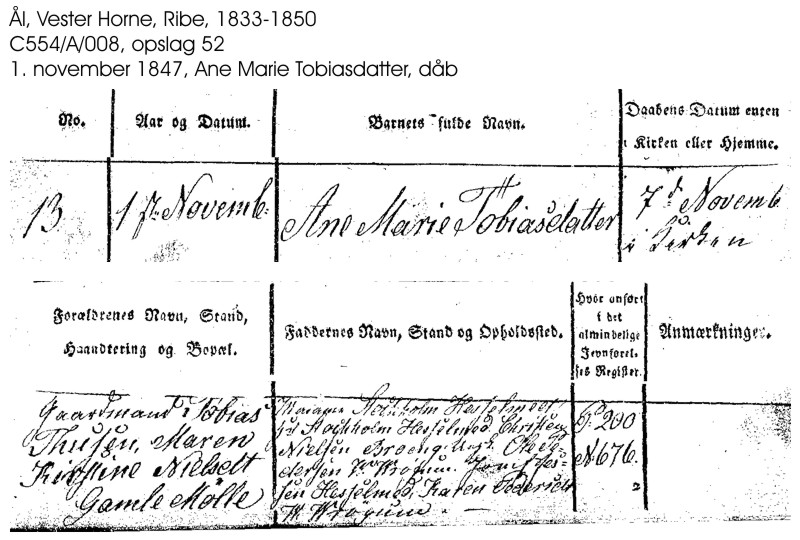 Ål, Vester Horne, Ribe, 1833-1850
C554/A/008, opslag 52
1. november 1847, Ane Marie Tobiasdatter, dåb
No.
Aar og Datum.
Barnets fulde Navn.
Daabens Datum enten
i Kirken eller Hjemme.
13
1ste Novemb:
Ane Marie Tobiasdatter
7de Novemb
i Kirken
Forældrenes Navn, Stand,
Haandtering og Bopæl.
Faddernes Navn, Stand og Opholdssted.
Hvor anført
i det
almindelige
Jevnførel-
ses Register.
Anmærkninger.
Gaardmand Tobias
Thusen, Maren
Kirstine Nielsdt
Gamle Mölle
Madame Stockholm Hesselmed
Stockholm Hesselmed, Christen
Nielsen
dersen
sen Hesselmed, Karen Pedersdt
P 200
N 676.